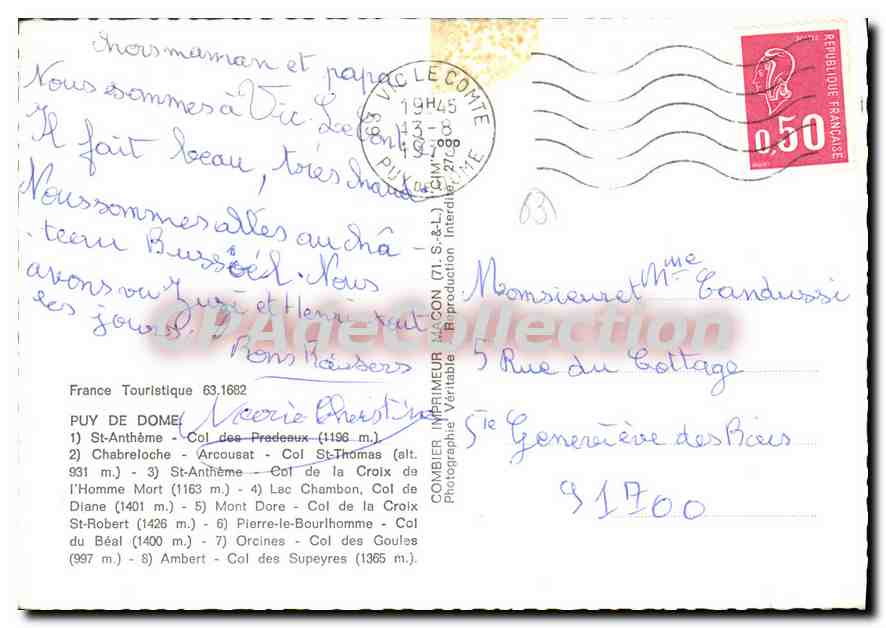 maman et papa
Nous sommes à Vic-Le Comte
Il fait beau, très chaud
Nous sommes allés au châ-
teau Busséol. Nous
avons vu et Henri tout
les jours.
Bons Baisers
Marie Christine
France Touristique 63.1682
PUY DE DOME
1) St-Anthème - Col des Pradeaux (1196 m.)
2) Chabreloche - Arcousat - Col St-Thomas (alt.
931 m.) - 3) St-Anthème - Col de la Croix de
l'Homme Mort (1163 m.) - 4) Lac Chambon, Col de
Diane (1401 m.) - 5) Mont Dore - Col de la Croix
St-Robert (1426 m.) - 6) Pierre-le-Bourlhomme - Col
du Béal (1400 m.) - 7) Orcines - Col des Goules
(997 m.) - 8) Ambert - Col des Supeyres (1365 m.).
COMBIER IMPRIMEUR MACON (71. S.-&-L.) "CIM"
Photographie Véritable - Reproduction Interdite.
63 VIC LE COMTE
19H45
13-8
PUY DE DOME
REPUBLIQUE FRANÇAISE
0,50
63
Monsieur et Mme Candussi
5 Rue du Cottage
Ste Geneviève des Bois
91700
CPAgeCollection